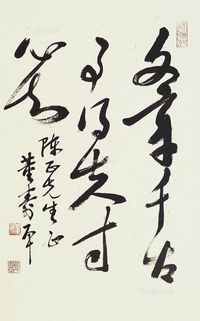 文章千古
事得失寸
心知
陈正先生正
董寿平